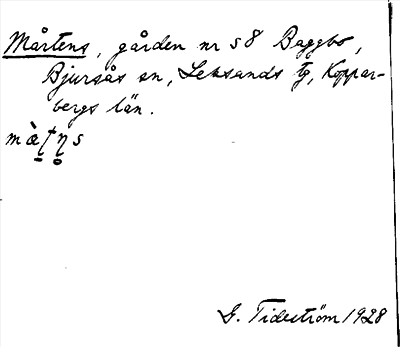 Mårtens, gården nr 58 Baggbo,
Bjursås sn, Leksands tg, Koppar-
bergs län.
G. Tideström 1928